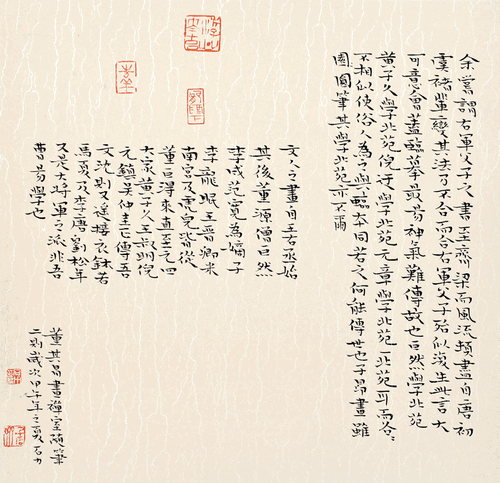 余嘗謂右軍父子之書至齊梁而風流頓盡自唐初
虞褚輩變其法乃不合而合右軍父子殆似復生此言大
可意會蓋臨摹最易神氣難傳故也巨然學北苑
黃子久學北苑倪迂學北苑元章學北苑一北苑耳而各各
不相似使俗人為之與臨本同若之何能傳世也子昂畫雖
圓圓筆其學北苑亦不爾
文人之畫自王右丞始
其後董源僧巨然
李成范寬為嫡子
李龍眠王晉卿米
南宮及虎兒皆從
董巨得來直至元四
大家黃子久王叔明倪
元鎮吳仲圭正傳吾
文沈則又遙接衣缽若
馬夏及李唐劉松年
又是大將軍之派非吾
曹易學也
董其昌畫禪室隨筆
二則歲次甲午年之夏